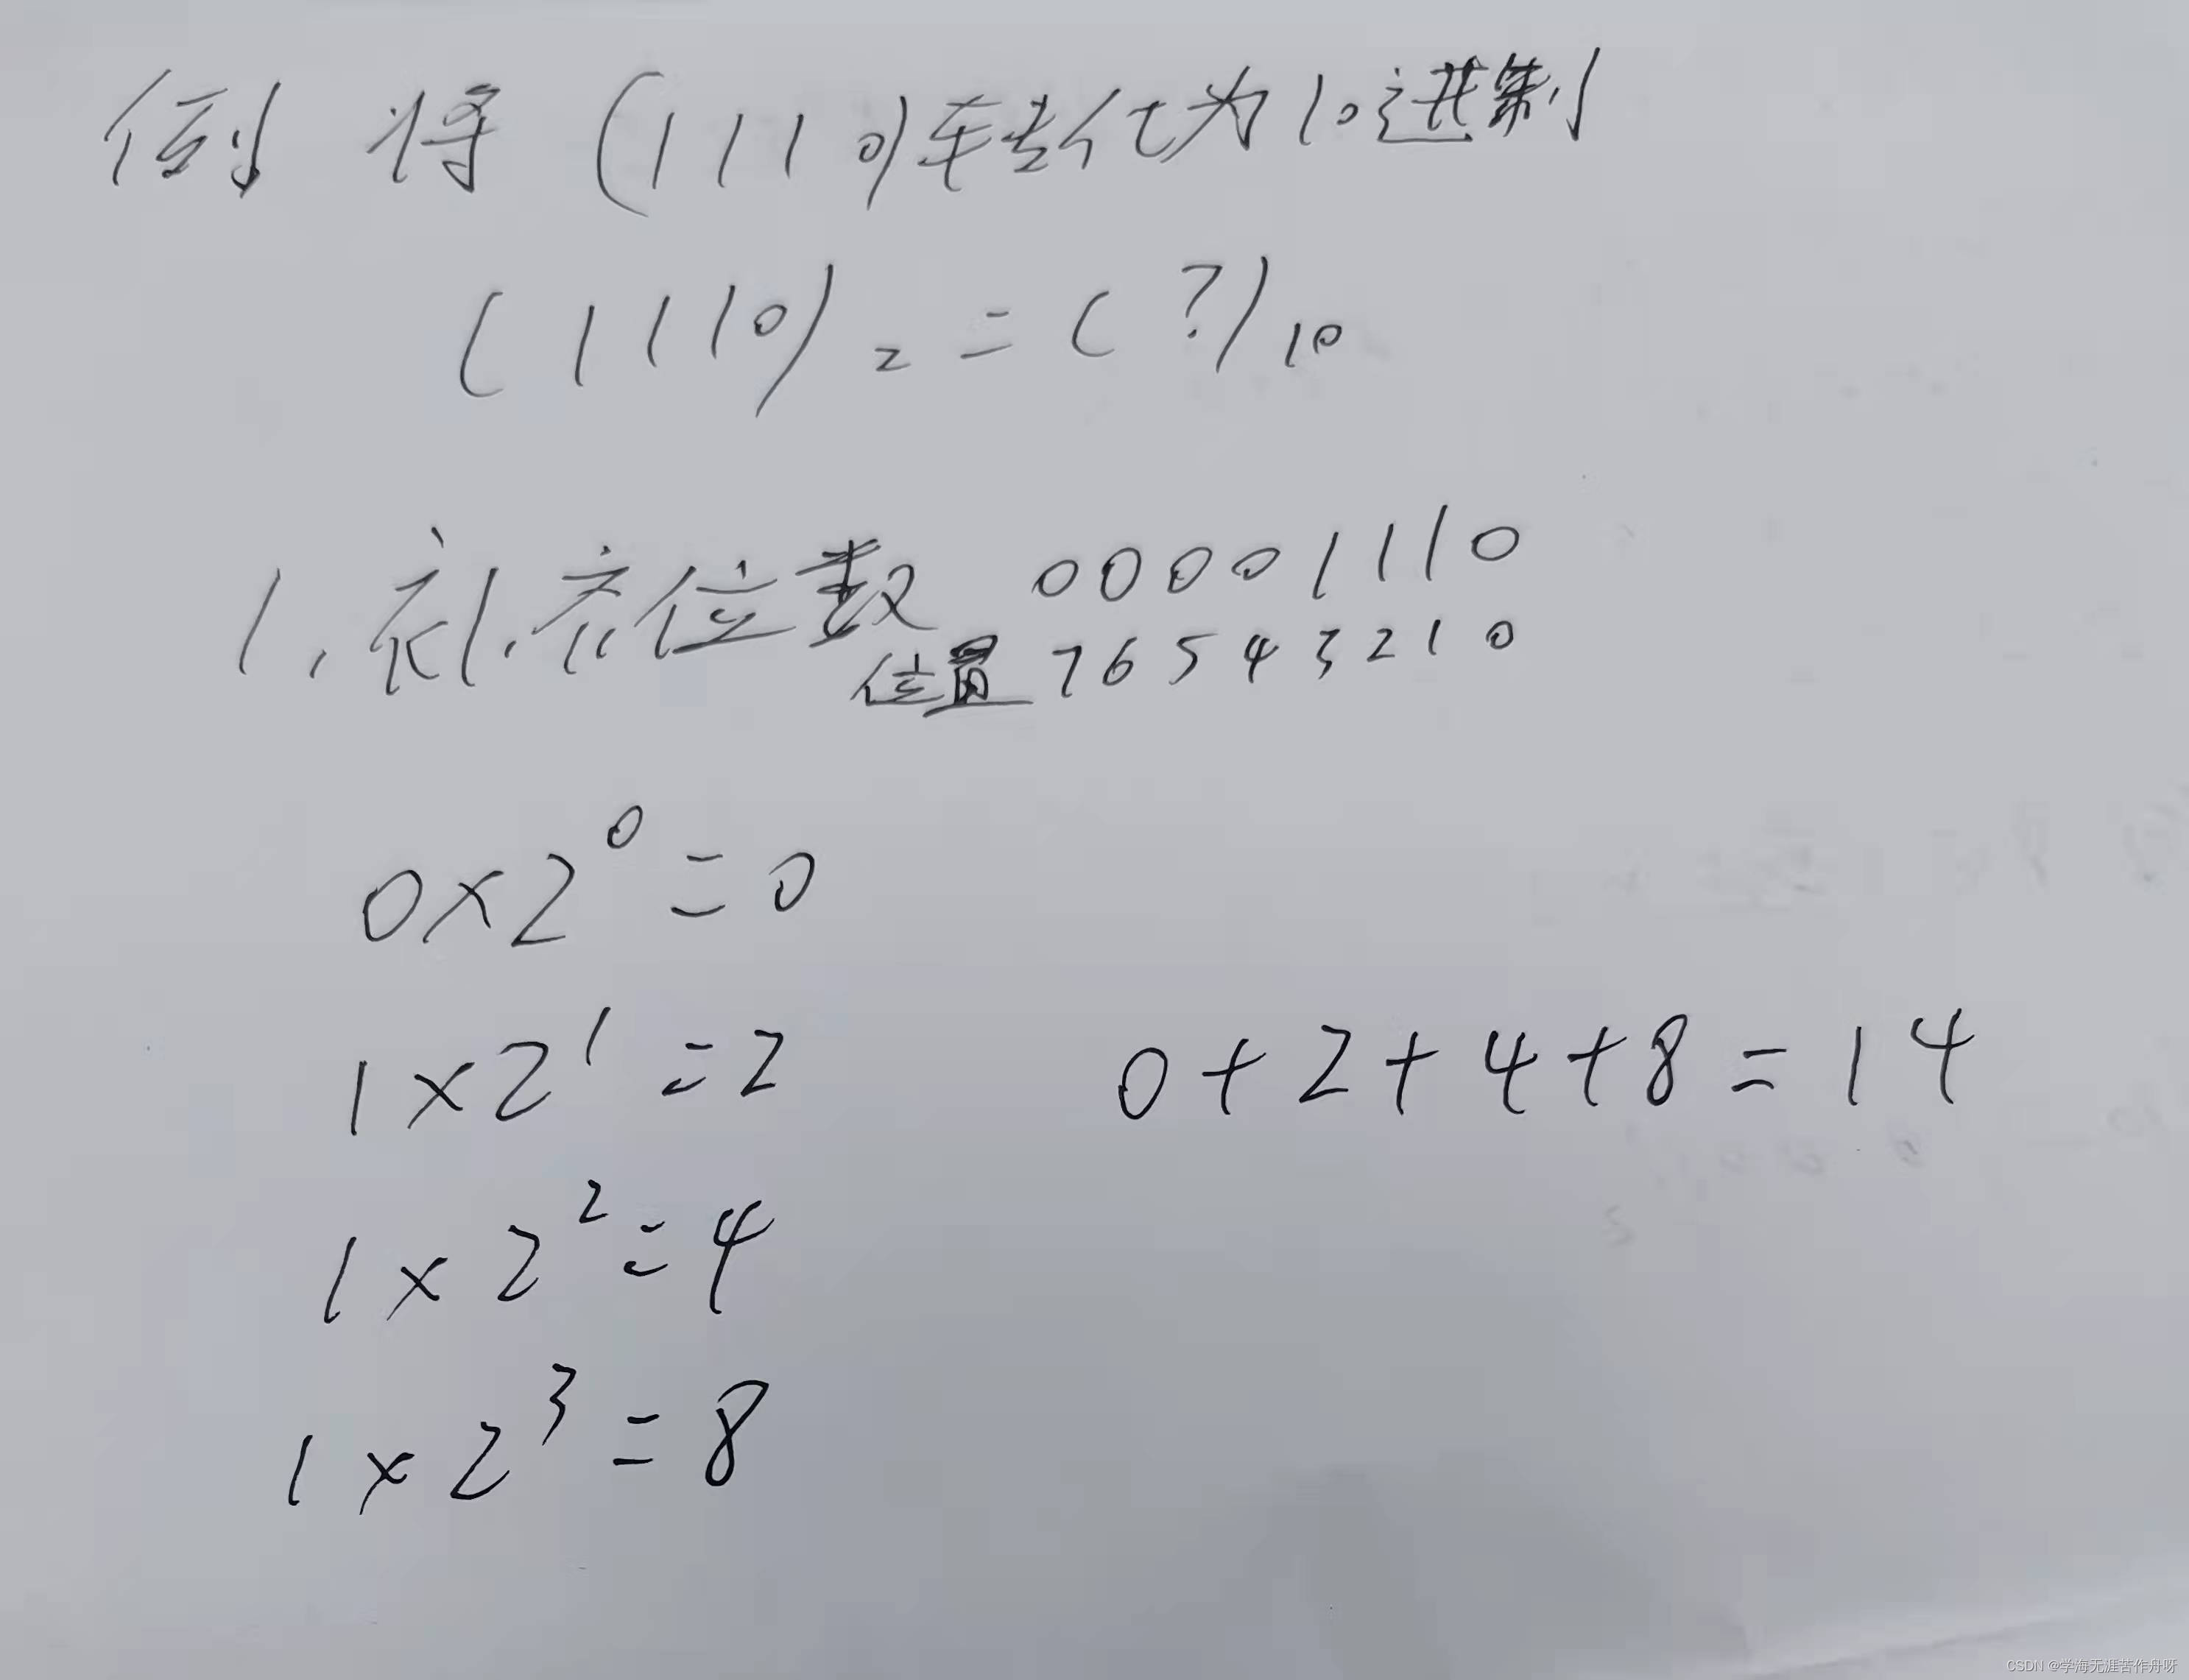 例 将(1110)转化为10进制
(1110)₂=(?)₁₀
1、补齐位数 00001110
位置 76543210
0×2⁰=0
1×2¹=2
0+2+4+8=14
1×2²=4
1×2³=8
CSDN @学海无涯苦作舟呀